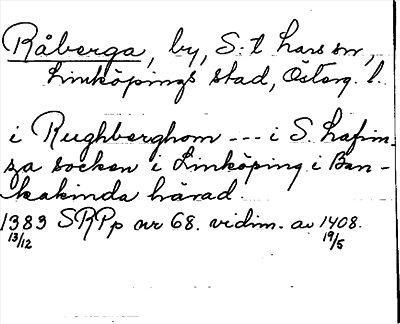 Råberga, by, S:t Lars sn,
Linköpings stad, Österg. l.
i Rughberghom --- i S. Lafrin-
sa socken i Linköping i Ban-
kakinda härad.
1383 SRPp nr 68. vidim. av 1408.
13/12 19/5